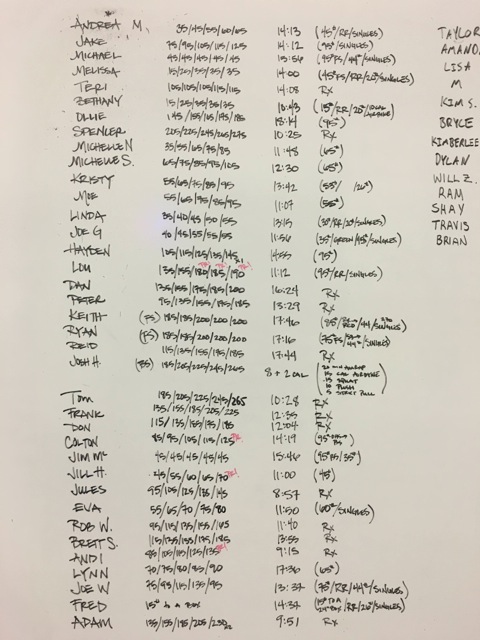 ANDREA M. 35/45/55/60/65 14:13 (45#/RR/SINGLES)
JAKE 75/95/105/115/125 14:12 (95#/SINGLES) TAYLOR
MICHAEL 45/45/45/45/45 AMAND
MELISSA 15/25/35/35/35 14:00 LISA
TERI 105/105/105/115/115 14:08 Rx M
BETHANY 15/25/35/35/35 10:43 KIM S.
OLLIE 145/155/165/175/185 18:14 (95#) BRYCE
SPENCER 205/225/245/265/275 10:25 Rx
MICHELLE N 35/55/65/75/85 11:48 (65#) KIMBERLEE
MICHELLE S. 65/75/85/95/105 12:30 (65#) DYLAN
KRISTY 55/65/75/85/95 13:42 WILL Z.
MOE 55/65/75/85/95 11:07 (55#) RAM
LINDA 35/40/45/50/55 13:15 SHAY
JOE G 40/45/55/55/55 11:56 TRAVIS
HAYDEN 105/115/125/135/145 x1 (95#) BRIAN
LOU 135/155/180/185/190 11:12 (95#/RR/SINGLES)
DAN 135/155/175/185/200 16:24 Rx
PETER 95/135/155/175/185 13:29 Rx
KEITH (FS) 185/185/200/200/200 17:46
RYAN (FS) 185/185/200/200/200 17:16
REID 115/135/155/175/185 17:44 Rx
JOSH H. (BS) 185/205/225/245/265 8 + 2 CAL
TOM 185/205/225/245/265 10:28 Rx
FRANK 135/155/185/205/225 12:35 Rx
DON 115/135/155/175/185 12:04 Rx
COLTON 85/95/105/115/125 PR 14:19
JIM MC 45/45/45/45/45 15:46
JILL H. 45/55/60/65/70 PR 11:00 (45#)
JULES 95/105/125/135/145 8:57 Rx
EVA 55/65/70/75/80 11:50 (60#/SINGLES)
ROB W. 95/115/135/155/165 11:40 Rx
BRETT S. 115/135/155/175/185 13:55 Rx
ANDI 95/105/115/125/135 PR 9:15 Rx
LYNN 70/75/80/85/90 17:36 (65#)
JOE W 75/95/115/135/95 13:37 (75#/RR/44#/SINGLES)
FRED 15# to a BOX 14:37
ADAM 135/155/185/205/230 9:51 Rx